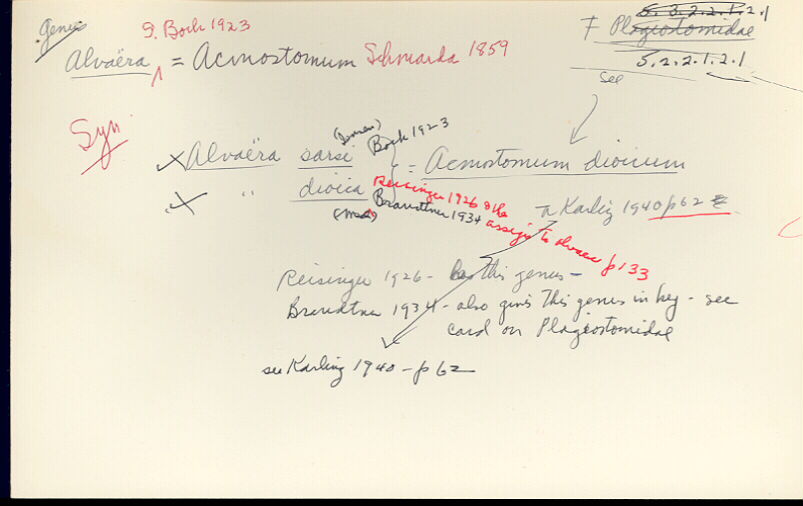 Genus
S. Bock 1923
Alvaëra = Acmostomum Schmarda 1859
5.3.2.2.1.2.1
F Plagiostomidae
5.2.2.1.2.1
see
Syn
x Alvaëra sarsi Bock 1923 = Acmostomum dioicum
x " dioica Reisinger 1926 
Brandtner 1934 assign to Alvaera p 133
Karling 1940 p 62
Reisinger 1926 - has this genus -
Brandtner 1934 - also gives this genus in key - see
card on Plagiostomidae
see Karling 1940 - p 62